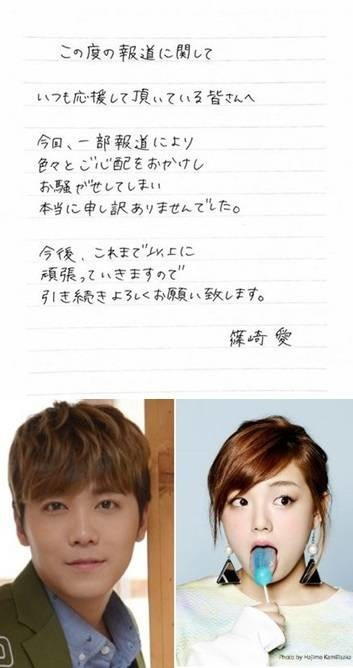 この度の報道に関して
いつも応援して頂いている皆さんへ
今回、一部報道により
色々とご心配をおかけし
お騒がせしてしまい
本当に申し訳ありませんでした。
今後、これまで以上に
頑張っていきますので
引き続きよろしくお願い致します。
篠崎 愛
Photo by Hajime Kamiiisaka